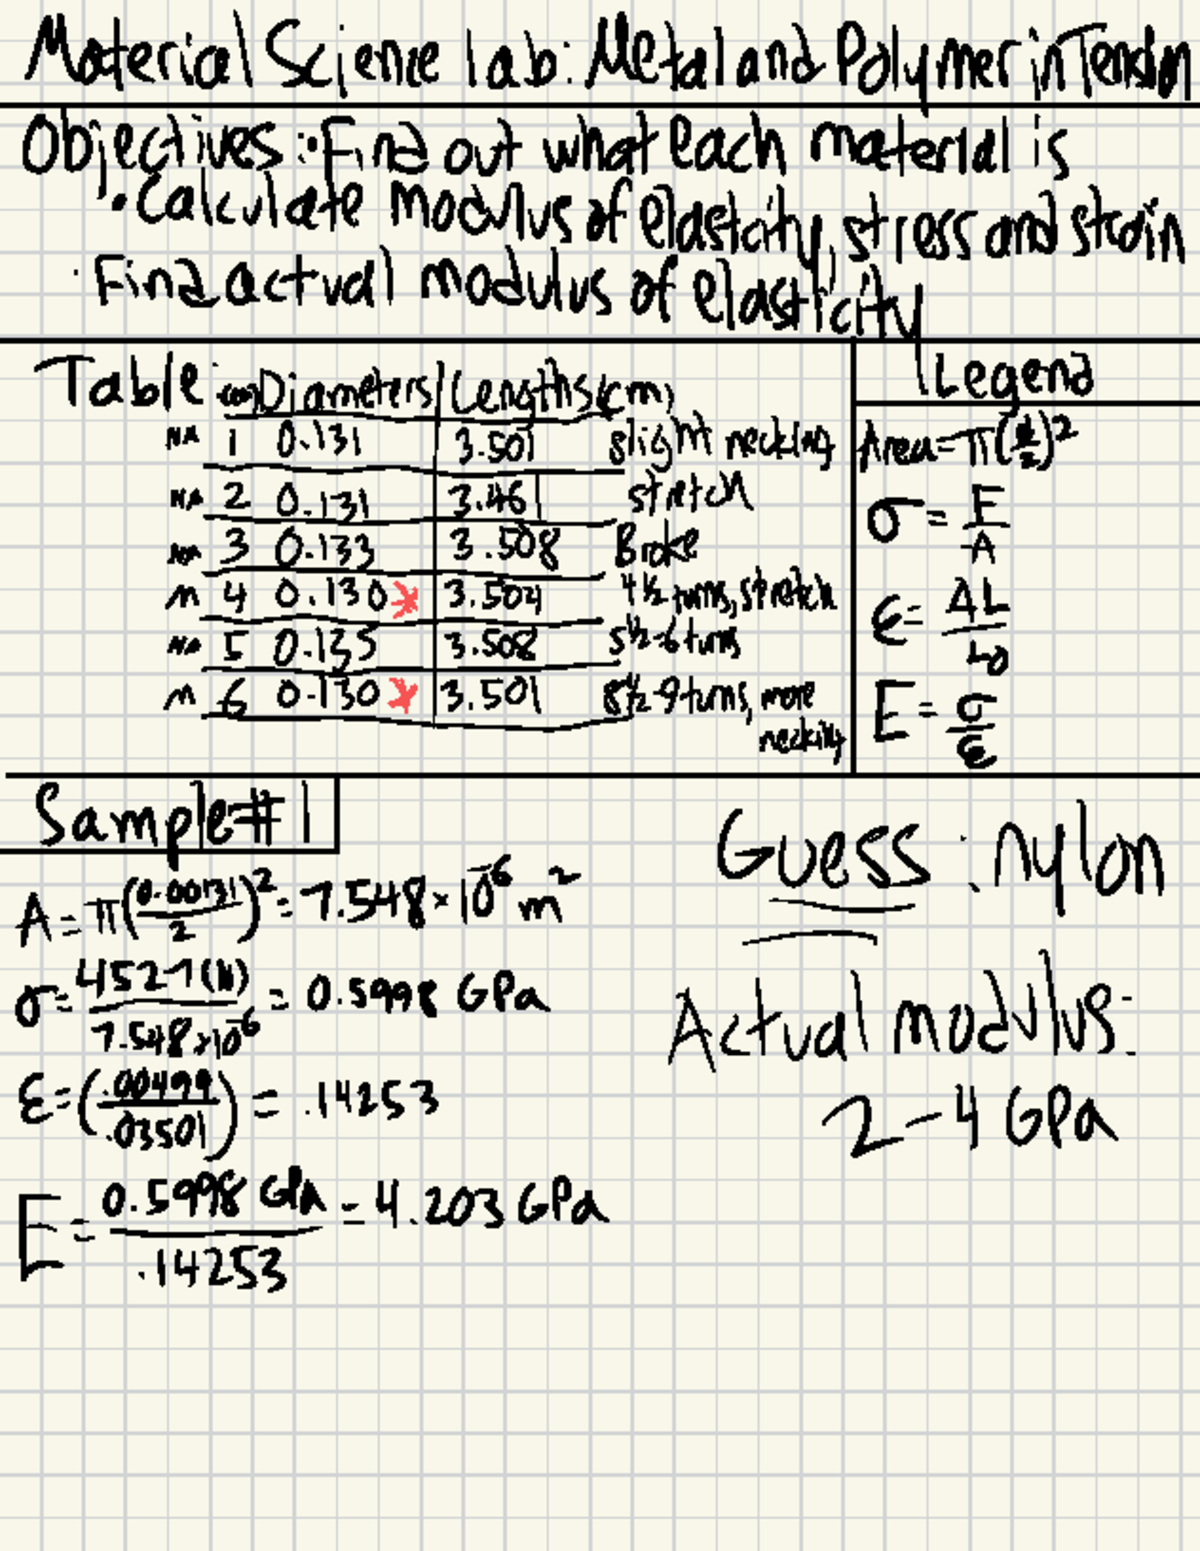 Material Science lab: Metal and Polymer in Tension
Objectives: • Find out what each material is
• Calculate modulus of elasticity, stress and strain
· Find actual modulus of elasticity
Table (cm) Diameters | Lengths (cm)
1 0.131 3.501 slight necking
2 0.131 3.461 stretch
3 0.133 3.508 Broke
m 4 0.130 * 3.504 4 ½ turns, stretch
5 0.135 3.508 5 ½-6 turns
m 6 0.130 * 3.501 8½-9 turns, more
necking
Legend
Area = π(d/2)²
σ = F/A
ε = ΔL/L0
E = σ/ε
Sample #1
A = π(0.00131/2)² = 7.548 × 10^-6 m²
σ = 4527 (N)/7.548×10^-6 = 0.5998 GPa
ε = (.00499/.03501) = .14253
E = 0.5998 GPa/.14253 = 4.203 GPa
Guess: nylon
Actual modulus:
2-4 GPa